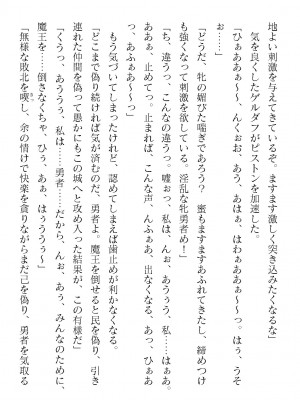 地よい刺激を与えているぞ。ますます激しく突き込みたくなるな」
気を良くしたゲルダフがピストンを加速した。
「ひぁあああ〜〜、んくぉお、あう、あはぁ、はわぁああぁ〜っ。はぅ、うそ
ぉ……」
「どうだ、牝の媚びた喘ぎであろう？　蜜もますますあふれてきたし、締めつけ
も強くなって刺激を欲している。淫乱な牝勇者め！」
「ち、違うっ、こんなの違うっ。嘘ぉっ、私は、んぉ、あうぅう、私……はぁあ。
あああぁ、止めてっ。止まれば、こんな声、んふぁぁあ、出なくなる、あっ、ひぁあ
っ、あふぁあ〜っ」
もう気づいてしまったけれど、認めてしまえば歯止めが利かなくなる。
「どこまで偽り続ければ気が済むのだ、勇者よ。魔王を倒せると民を偽り、引き
連れた仲間を偽って愚かにもこの城へと攻め入った結果が、この有様だ」
「くううっ、あううぅ、私は……勇者……だから、んぉ、あぅ、みんなのために、
魔王を……倒さなくちゃ、ひぅ、あぁぁ、はぅううう〜」
「無様な敗北を喫し、余の情けで快楽を貪りながらまだ己を偽り、勇者を気取る